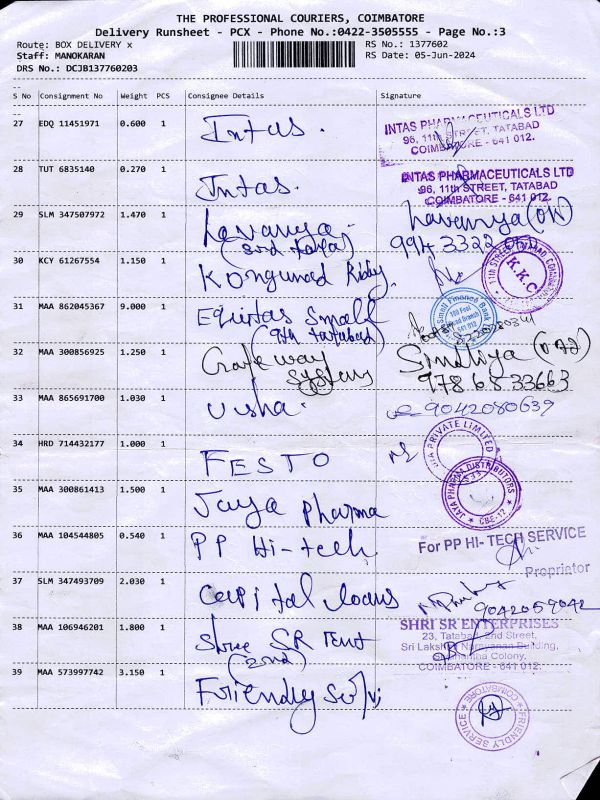 THE PROFESSIONAL COURIERS, COIMBATORE
Delivery Runsheet - PCX - Phone No.:0422-3505555 - Page No.:3
Route: BOX DELIVERY x RS No.: 1377602
Staff: MANOKARAN RS Date: 05-Jun-2024
DRS No.: DCJB137760203
S No Consignment No Weight PCS Consignee Details Signature
27 EDQ 11451971 0.600 1 Intas.
INTAS PHARMACEUTICALS LTD
96, 11th STREET, TATABAD
COIMBATORE - 641 012.
28 TUT 6835140 0.270 1 Intas.
INTAS PHARMACEUTICALS LTD
96, 11th STREET, TATABAD
COIMBATORE - 641 012.
29 SLM 347507972 1.470 1 Lavanya. Lavanya
994 3322
30 KCY 61267554 1.150 1 Kongunad
K.K.C.
31 MAA 862045367 9.000 1 Equitas Small
(9th tatabad)
Small Finance Bank
100 Feet
641 012
32 MAA 300856925 1.250 1 Gateway
systems
97868 33663
33 MAA 865691700 1.030 1 Usha. 9042080639
34 HRD 714432177 1.000 1 FESTO
PRIVATE LIMITED
35 MAA 300861413 1.500 1 Jaya Pharma
JAYA PHARMA DISTRIBUTORS
CBE-12
36 MAA 104544805 0.540 1 PP Hi-tech
For PP HI- TECH SERVICE
Proprietor
37 SLM 347493709 2.030 1 Capital loans
9042059042
38 MAA 106946201 1.800 1 Shree SR Tent
(2nd)
SHRI SR ENTERPRISES
23, Tatabad, 2nd Street,
Sri Lakshmi Narayanan Building,
Colony,
COIMBATORE - 641 012.
39 MAA 573997742 3.150 1 Friendly
FRIENDLY SERVICE
COIMBATORE